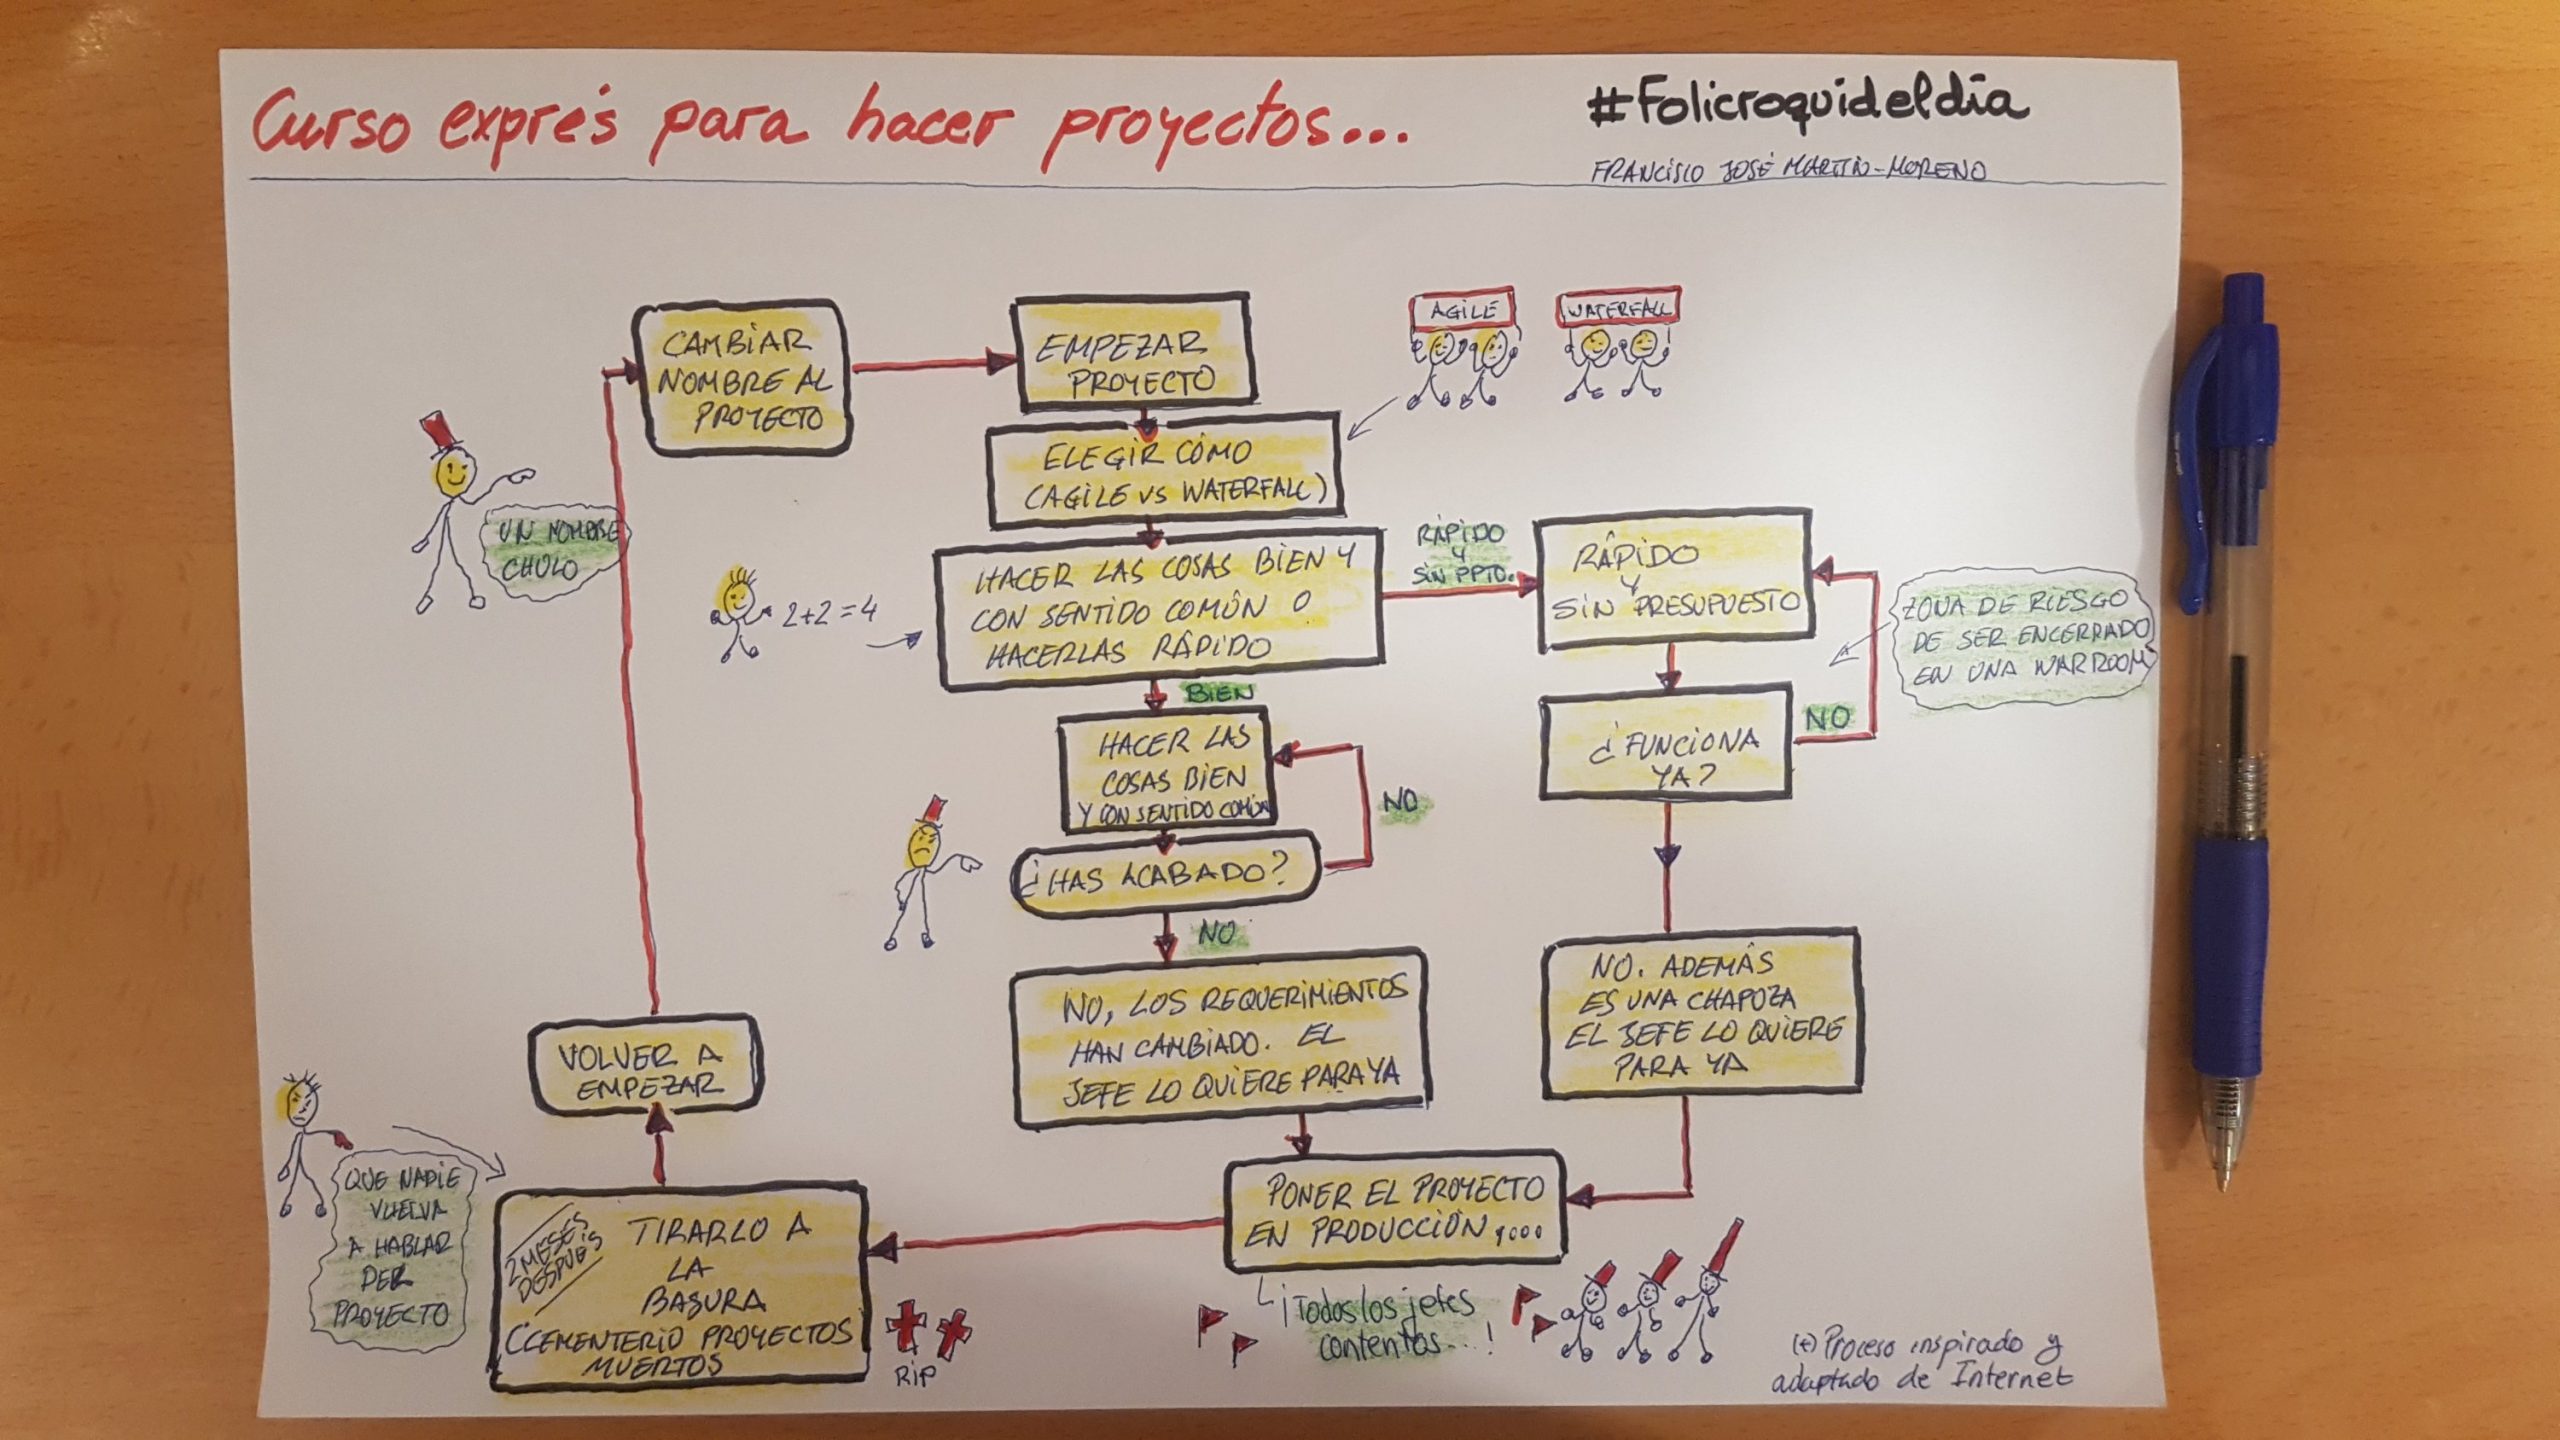 Curso exprés para hacer proyectos...
#Folicroquideldia
FRANCISCO JOSÉ MARTÍN-MORENO
CAMBIAR
NOMBRE AL
PROYECTO
EMPEZAR
PROYECTO
AGILE
WATERFALL
ELEGIR CÓMO
(AGILE VS WATERFALL)
UN NOMBRE
CHULO
2+2=4
HACER LAS COSAS BIEN Y
CON SENTIDO COMÚN O
HACERLAS RÁPIDO
RÁPIDO
Y
SIN PPTO.
RÁPIDO
Y
SIN PRESUPUESTO
ZONA DE RIESGO
DE SER ENCERRADO
EN UNA WARROOM
BIEN
HACER LAS
COSAS BIEN
Y CON SENTIDO COMÚN
NO
¿FUNCIONA
YA?
NO
¿HAS ACABADO?
NO
NO, LOS REQUERIMIENTOS
HAN CAMBIADO. EL
JEFE LO QUIERE PARA YA
NO. ADEMÁS
ES UNA CHAPOZA
EL JEFE LO QUIERE
PARA YA
VOLVER A
EMPEZAR
QUE NADIE
VUELVA
A HABLAR
DEL
PROYECTO
2 MESES
DESPUÉS
TIRARLO A
LA
BASURA
(CEMENTERIO PROYECTOS
MUERTOS
RIP
PONER EL PROYECTO
EN PRODUCCIÓN,...
¡Todos los jefes
contentos...!
(+) Proceso inspirado y
adaptado de Internet